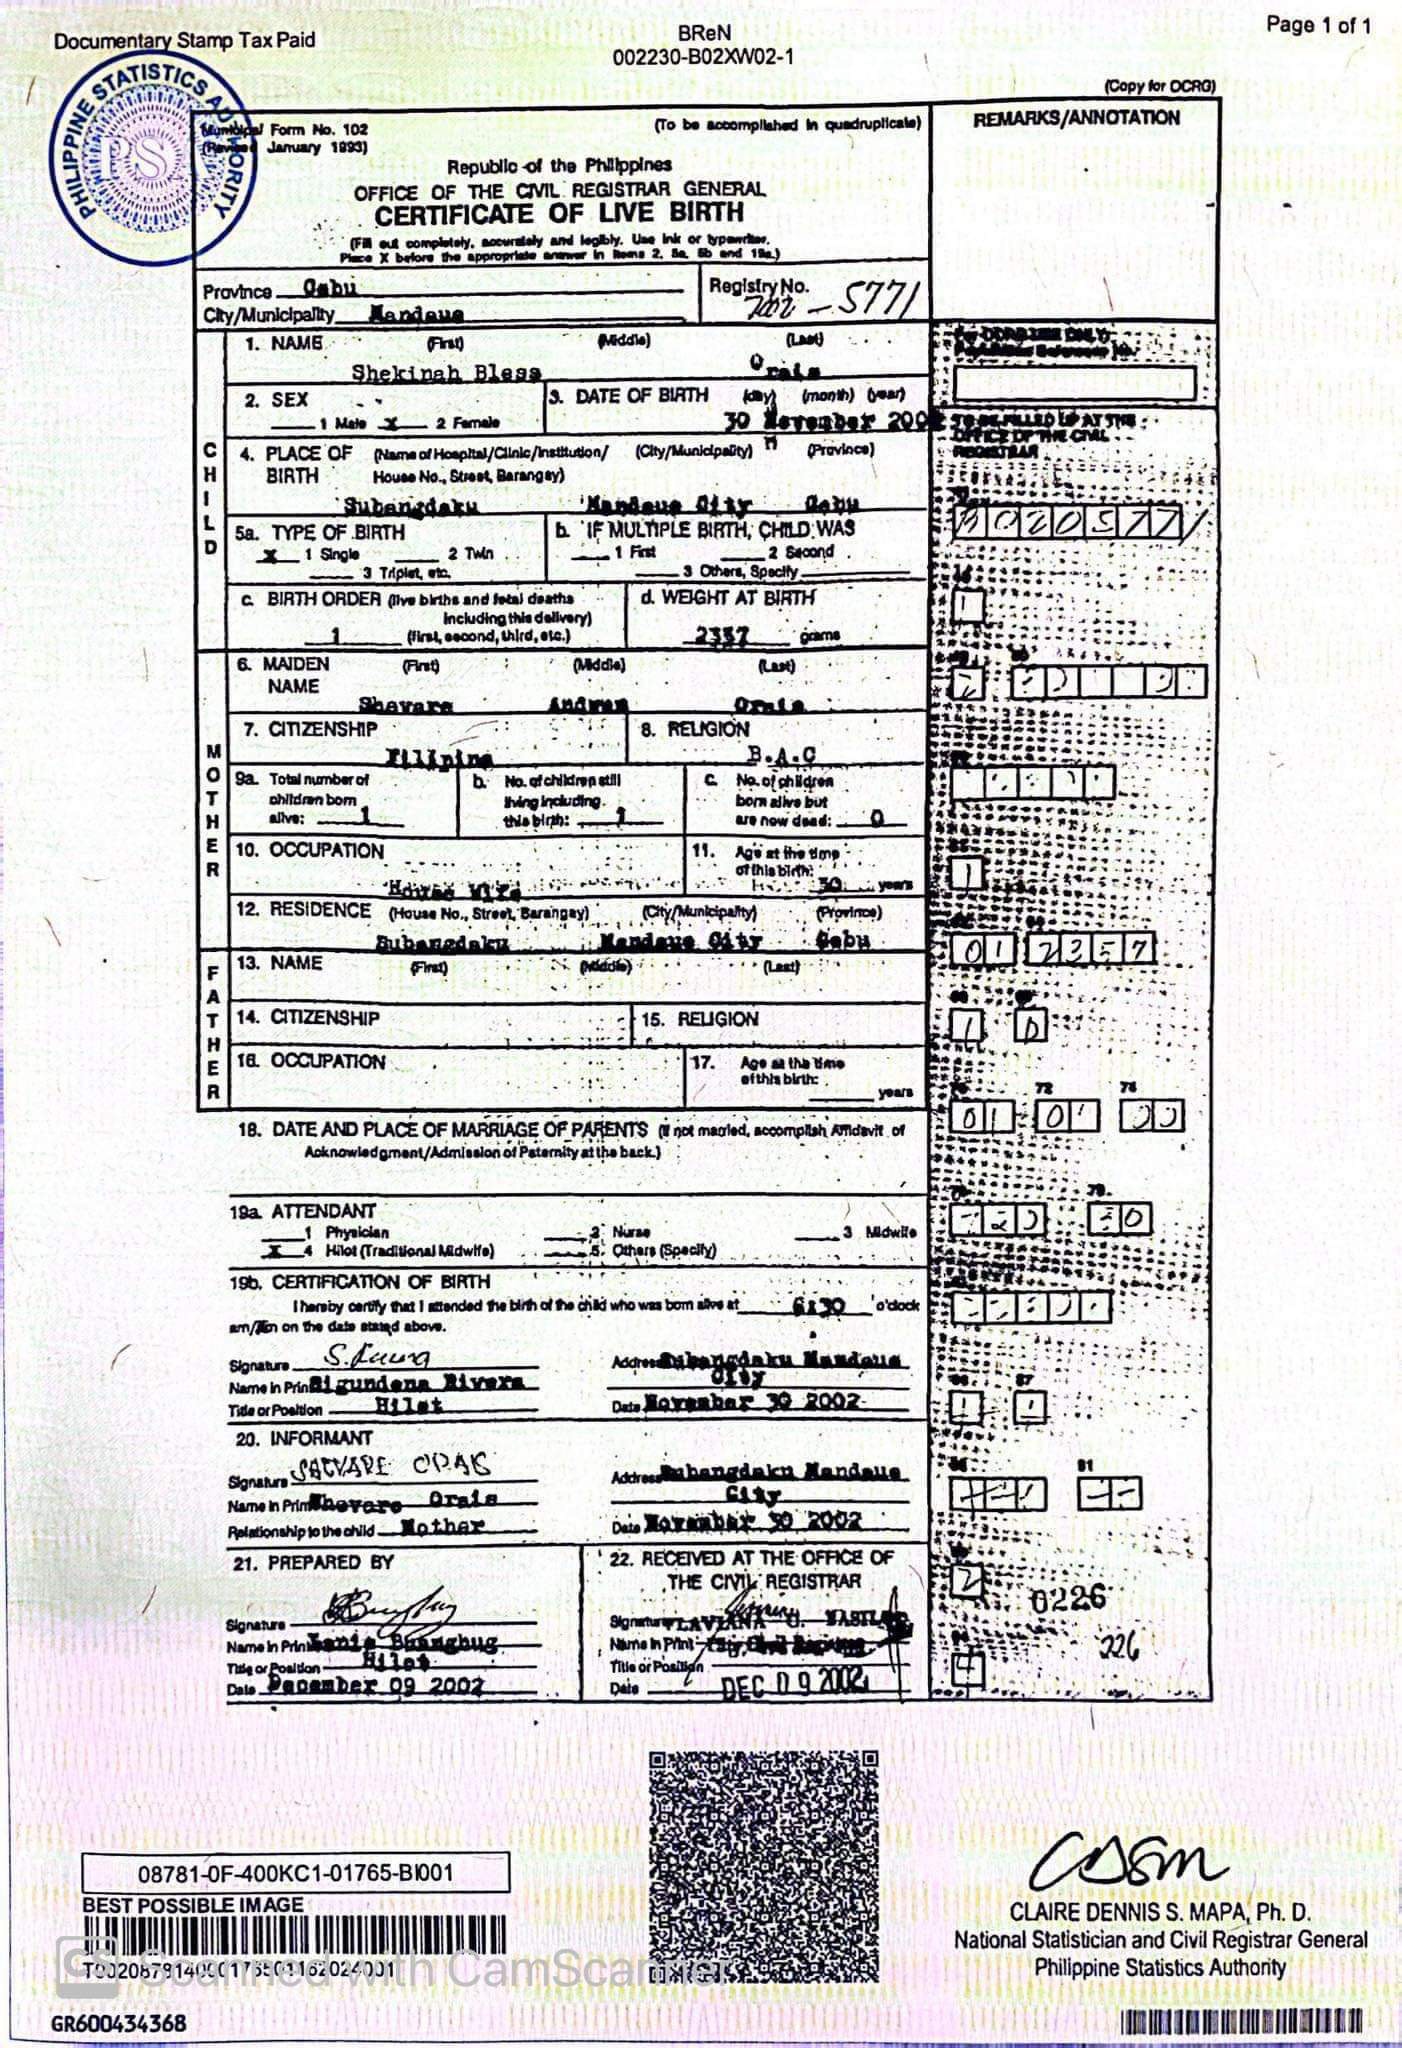 Documentary Stamp Tax Paid
BReN
002230-B02XW02-1
Page 1 of 1
(Copy for OCRG)
PHILIPPINE STATISTICS AUTHORITY
PSA
Municipal Form No. 102
(Revised January 1993)
(To be accomplished in quadruplicate)
REMARKS/ANNOTATION
Republic of the Philippines
OFFICE OF THE CIVIL REGISTRAR GENERAL
CERTIFICATE OF LIVE BIRTH
(Fill out completely, accurately and legibly. Use ink or typewriter.
Place X before the appropriate answer in items 2, 5a, 5b and 19a.)
Province Cebu
City/Municipality Mandaue
Registry No.
2002 - 5771
CHILD
1. NAME (First) (Middle) (Last)
Shekinah Bless Orais
2. SEX
1 Male X 2 Female
3. DATE OF BIRTH (day) (month) (year)
30 November 2002
TO BE FILLED UP AT THE
OFFICE OF THE CIVIL
REGISTRAR
4. PLACE OF BIRTH (Name of Hospital/Clinic/Institution/ (City/Municipality) (Province)
House No., Street, Barangay)
Subangdaku Mandaue City Cebu
5a. TYPE OF BIRTH
X 1 Single 2 Twin
3 Triplet, etc.
b. IF MULTIPLE BIRTH, CHILD WAS
1 First 2 Second
3 Others, Specify
c. BIRTH ORDER (live births and fetal deaths
including this delivery)
1 (first, second, third, etc.)
d. WEIGHT AT BIRTH
grams
MOTHER
6. MAIDEN NAME (First) (Middle) (Last)
Orais
7. CITIZENSHIP
Filipina
8. RELIGION
B.A.C
9a. Total number of
children born
alive: 1
b. No. of children still
living including
this birth: 1
c. No. of children
born alive but
are now dead: 0
10. OCCUPATION
House Wife
11. Age at the time
of this birth:
30 years
12. RESIDENCE (House No., Street, Barangay) (City/Municipality) (Province)
Subangdaku Mandaue City Cebu
01 2357
FATHER
13. NAME (First) (Middle) (Last)
14. CITIZENSHIP
15. RELIGION
16. OCCUPATION
17. Age at the time
of this birth:
years
18. DATE AND PLACE OF MARRIAGE OF PARENTS (If not married, accomplish Affidavit of
Acknowledgment/Admission of Paternity at the back.)
19a. ATTENDANT
1 Physician 2 Nurse 3 Midwife
X 4 Hilot (Traditional Midwife) 5 Others (Specify)
19b. CERTIFICATION OF BIRTH
I hereby certify that I attended the birth of the child who was born alive at 6:30 o'clock
am/pm on the date stated above.
Signature
Name in Print Sigundena Rivera
Title or Position Hilot
Address Subangdaku Mandaue
City
Date November 30 2002
20. INFORMANT
Signature
Name in Print Orais
Relationship to the child Mother
Address Subangdaku Mandaue
City
Date November 30 2002
21. PREPARED BY
Signature
Name in Print
Title or Position Hilot
Date December 09 2002
22. RECEIVED AT THE OFFICE OF
THE CIVIL REGISTRAR
Signature
Name in Print
Title or Position
Date DEC 09 2002
0226
226
08781-0F-400KC1-01765-BI001
BEST POSSIBLE IMAGE
CS Scanned with CamScanner
GR600434368
CLAIRE DENNIS S. MAPA, Ph. D.
National Statistician and Civil Registrar General
Philippine Statistics Authority